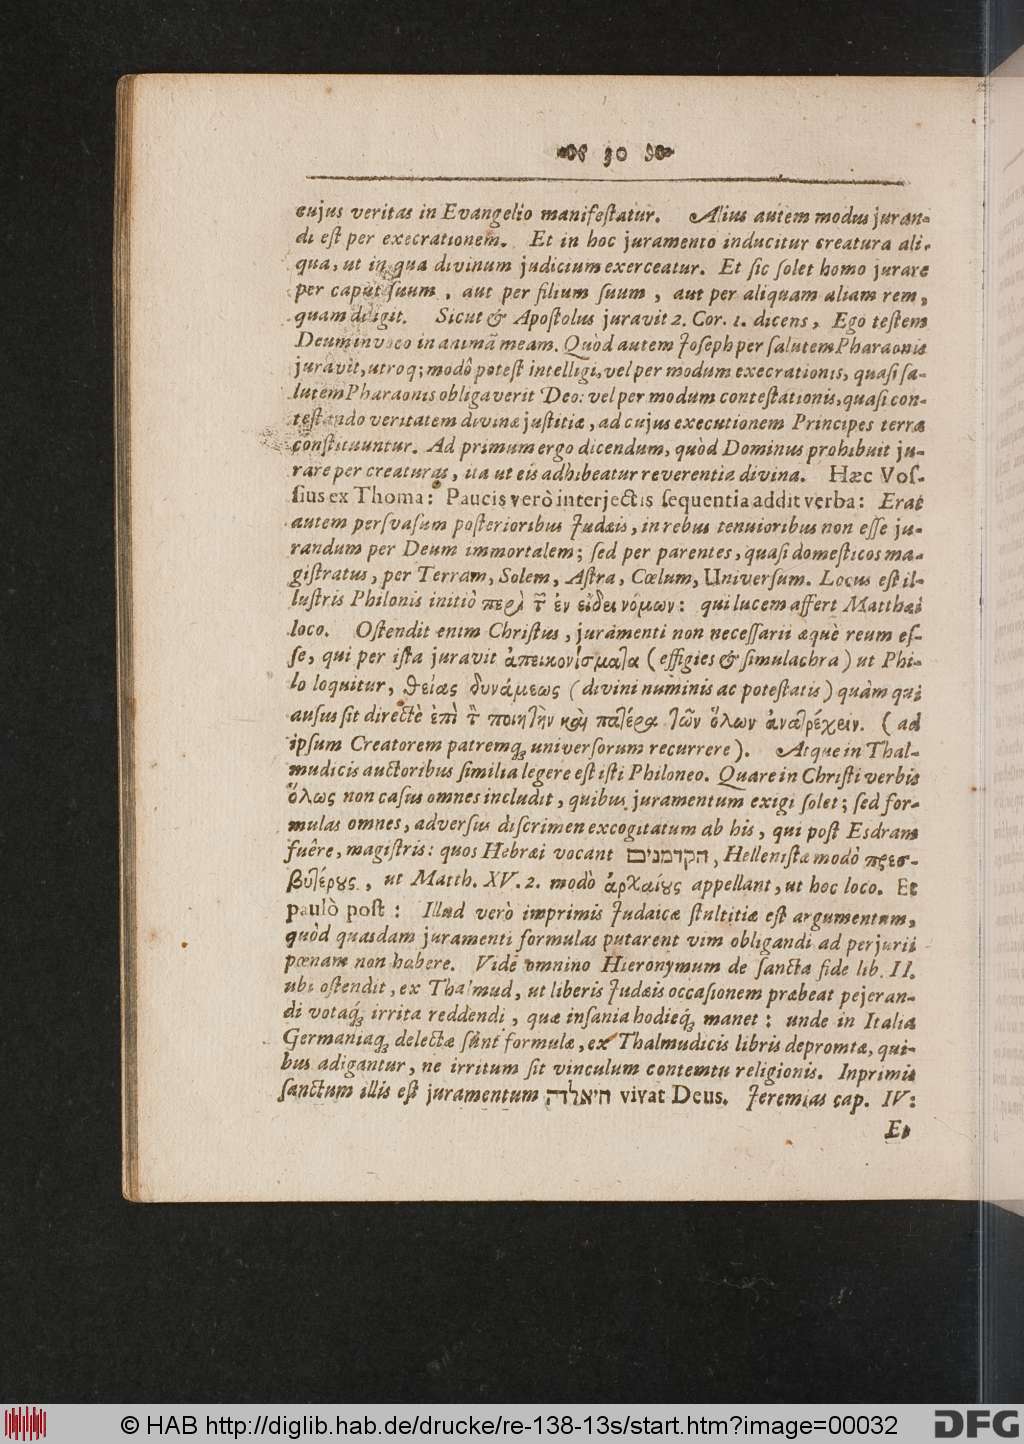 30
cujus veritas in Evangelio manifeſtatur. Alius autem modus juran-
di eſt per execrationem. Et in hoc juramento inducitur creatura ali-
qua, ut in qua divinum judicium exerceatur. Et ſic ſolet homo jurare
per caput ſuum, aut per filium ſuum, aut per aliquam aliam rem,
quam diligit. Sicut & Apoſtolus juravit 2. Cor. 1. dicens, Ego teſtem
Deum invoco in animã meam. Quòd autem Joſeph per ſalutem Pharaonis
juravit, utroq; modô poteſt intelligi, vel per modum execrationis, quaſi ſa-
lutem Pharaonis obligaverit Deo: vel per modum conteſtationis, quaſi con-
teſtando veritatem divinæ juſtitiæ, ad cujus executionem Principes terræ
conſtituuntur. Ad primum ergo dicendum, quòd Dominus prohibuit ju-
rare per creaturas, ita ut eis adhibeatur reverentia divina. Hæc Voſ-
ſius ex Thoma: Paucis verò interjectis ſequentia addit verba: Erat
autem perſvaſum poſterioribus Judæis, in rebus tenuioribus non eſſe ju-
randum per Deum immortalem; ſed per parentes, quaſi domeſticos ma-
giſtratus, per Terram, Solem, Aſtra, Cœlum, Univerſum. Locus eſt il-
luſtris Philonis initiò περὶ τ̃ ἐν εἴδει νόμων: qui lucem affert Matthæi
loco. Oſtendit enim Chriſtus, juramenti non neceſſarii æquè reum eſ-
ſe, qui per iſta juravit ἀπεικονίσματα (effigies & ſimulachra) ut Phi-
lo loquitur, θείας δυνάμεως (divini numinis ac poteſtatis) quàm qui
auſus ſit directè ἐπὶ τ̃ ποιητὴν καὶ πατέρα τῶν ὅλων ἀνατρέχειν. (ad
ipſum Creatorem patremq; univerſorum recurrere). Atque in Thal-
mudicis auctoribus ſimilia legere eſt iſti Philoneo. Quare in Chriſti verbis
ὅλως non caſus omnes includit, quibus juramentum exigi ſolet; ſed for-
mulas omnes, adverſus diſcrimen excogitatum ab his, qui poſt Esdram
fuêre, magiſtris: quos Hebræi vocant הקדמנים, Helleniſtæ modò πρεσ-
βυτέρους, ut Matth. XV. 2. modò ἀρχαίους appellant, ut hoc loco. Et
paulò poſt: Illud verò imprimis Judaicæ ſtultitiæ eſt argumentum,
quòd quasdam juramenti formulas putarent vim obligandi ad perjurii
pœnam non habere. Vide omnino Hieronymum de ſancta fide lib. II.
ubi oſtendit, ex Thalmud, ut liberis Judæis occaſionem præbeat pejeran-
di votaq; irrita reddendi, quæ inſania hodieq; manet: unde in Italia
Germaniaq; delectæ ſunt formulæ, ex Thalmudicis libris depromtæ, qui-
bus adigantur, ne irritum ſit vinculum contemtu religionis. Inprimis
ſanctum illis eſt juramentum חיאלדה vivat Deus. Jeremias cap. IV:
Et
© HAB http://diglib.hab.de/drucke/re-138-13s/start.htm?image=00032
DFG